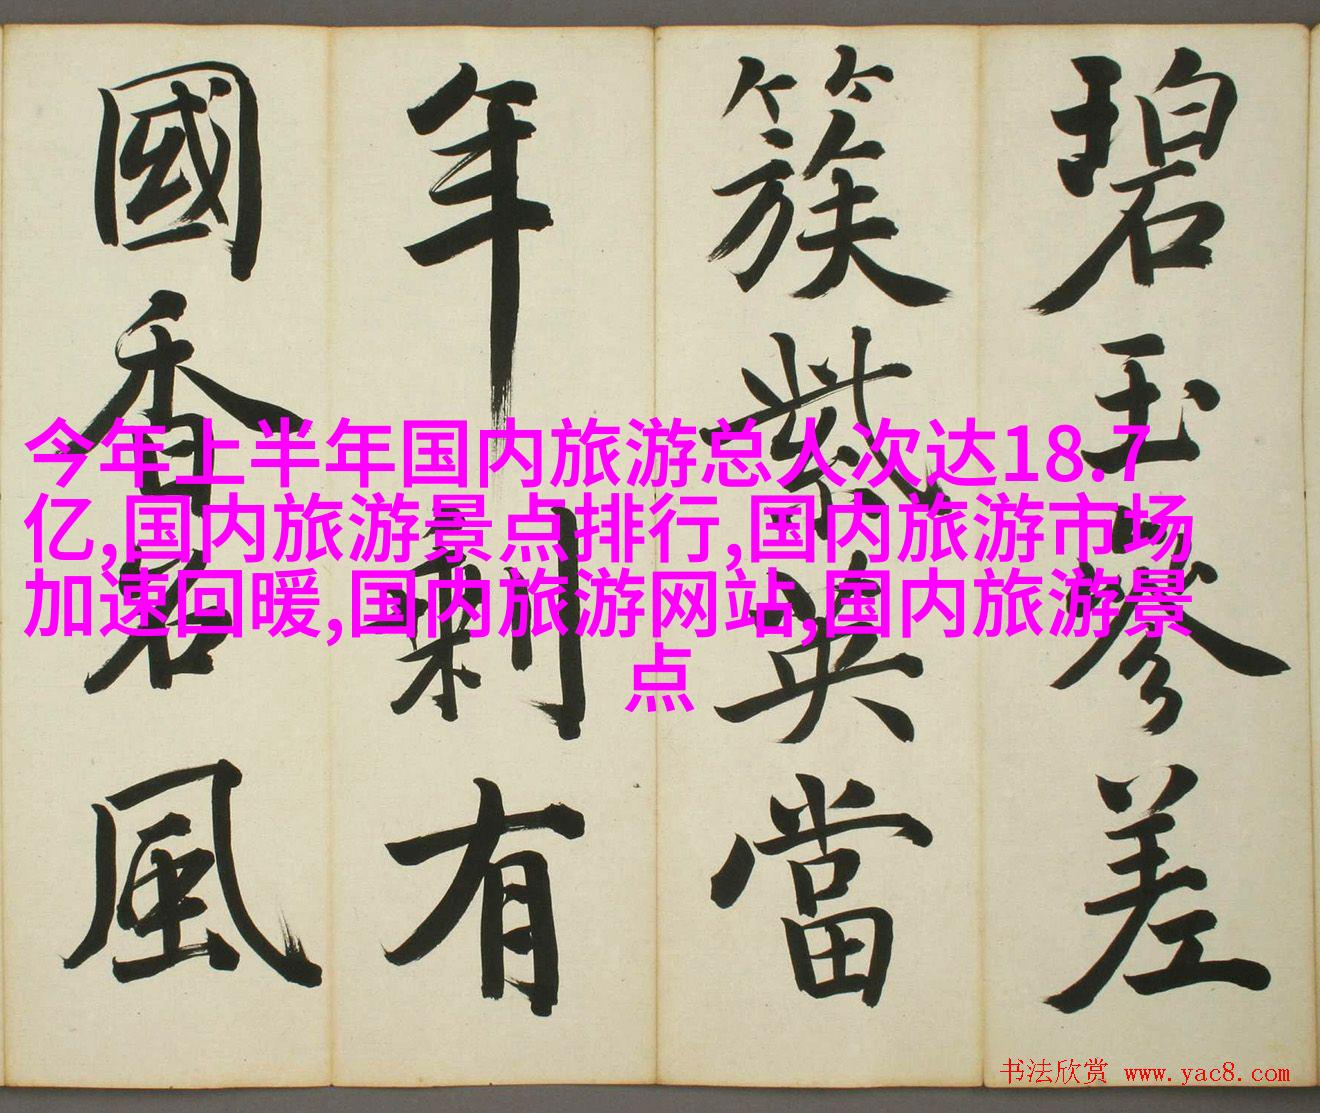 碧玉參差
簇紫英當
年剩有
國香名風
今年上半年国内旅游总人次达18.7
亿,国内旅游景点排行,国内旅游市场
加速回暖,国内旅游网站,国内旅游景
点
书法欣赏 www.yac8.com